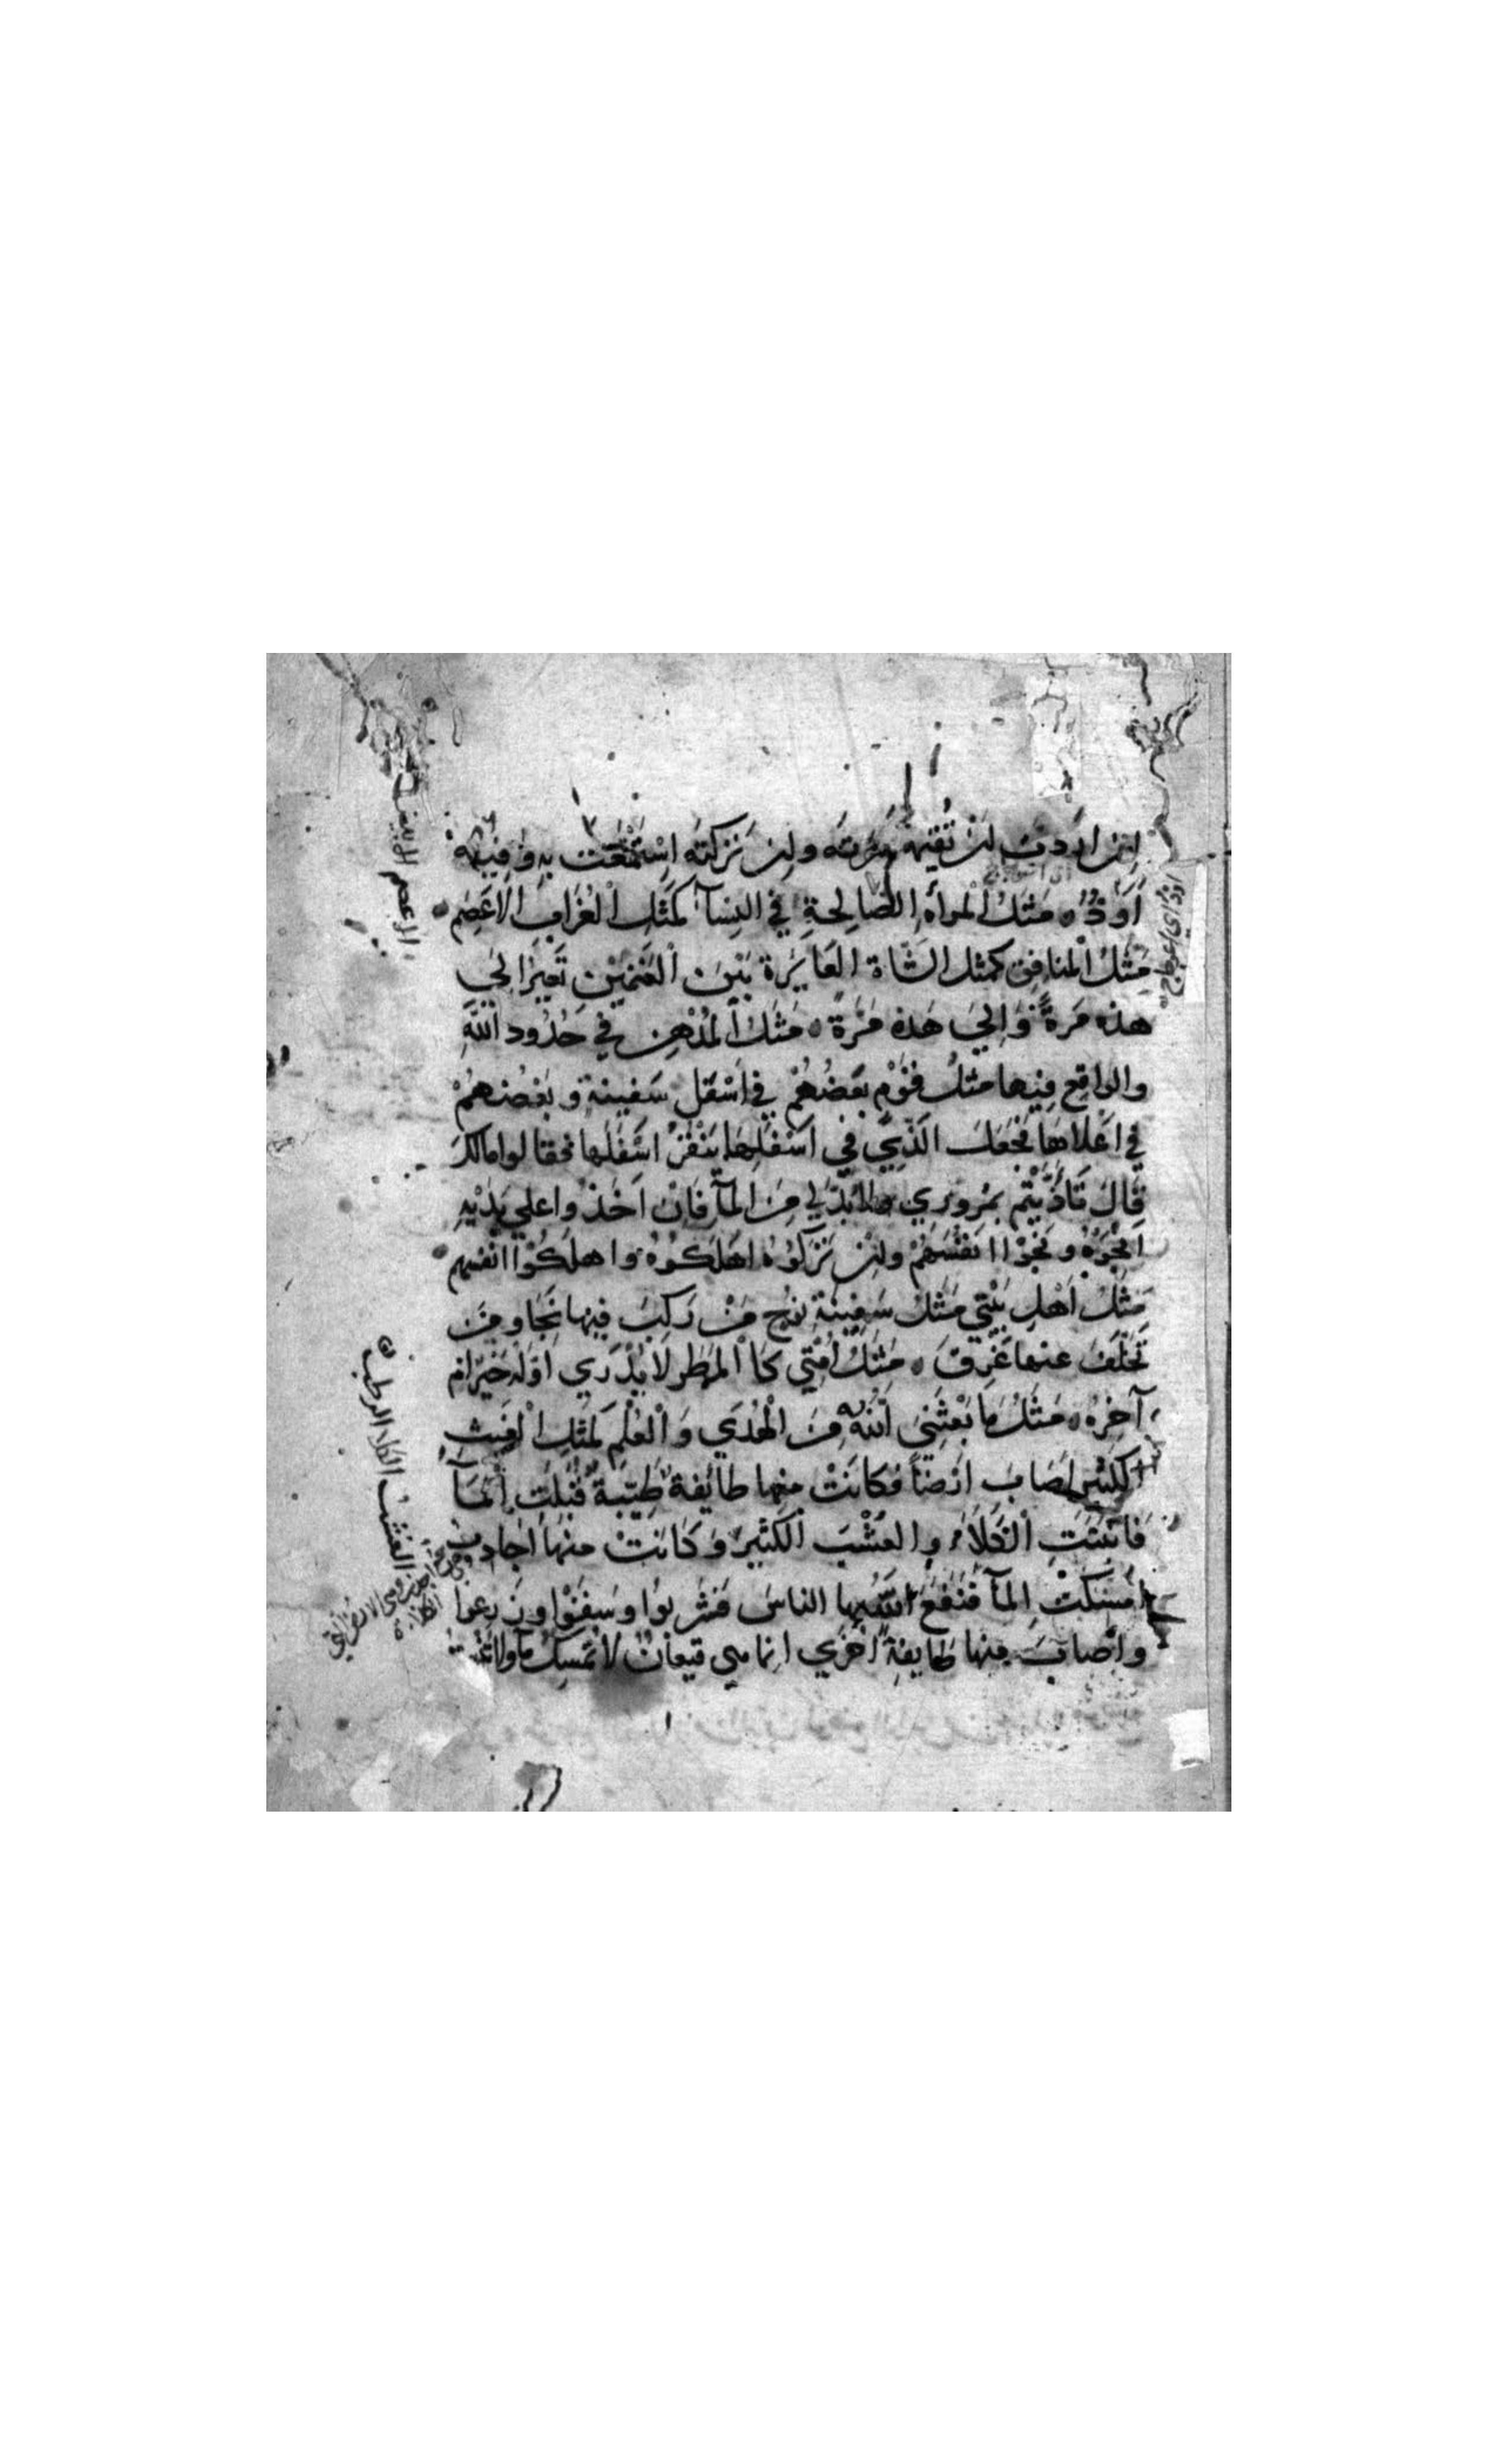 لئن اردت ان تقيمه كسرته ولئن تركته استمتعت به وفيه
اود مثل المرأه الصالحة في النسآ كمثل الغراب الاعصم
مثل المنافق كمثل الشاة العايرة بين الغنمين تعير الي
هذه مرة والي هذه مرة مثل المدهن في حدود الله
والواقع فيها مثل قوم بعضهم في اسفل سفينة وبعضهم
في اعلاها فجعل الذي في اسفلها ينقر اسفلها فقالوا مالك
قال تاذيتم بمروري ولا بد لي من المآ فان اخذوا علي يديه
انجوه ونجوا انفسهم ولئن تركوه اهلكوه واهلكوا انفسهم
مثل اهل بيتي مثل سفينة نوح من ركب فيها نجا ومن
تخلف عنها غرق مثل امتي كاالمطر لا يدري اوله خير ام
آخره مثل ما بعثني الله من الهدي والعلم كمثل الغيث
الكثير اصاب ارضا فكانت منها طائفة طيبة قبلت المآ
فانبتت الكلاء والعشب الكثير وكانت منها اجادب
امسكت المآ فنفع الله بها الناس فشربوا وسقوا وزرعوا
واصاب منها طايفة اخري انما هي قيعان لا تمسك مآ ولا تنبت
الاعصم الابيض
اود اي اعوجاج
العشب الكلاء الرطب